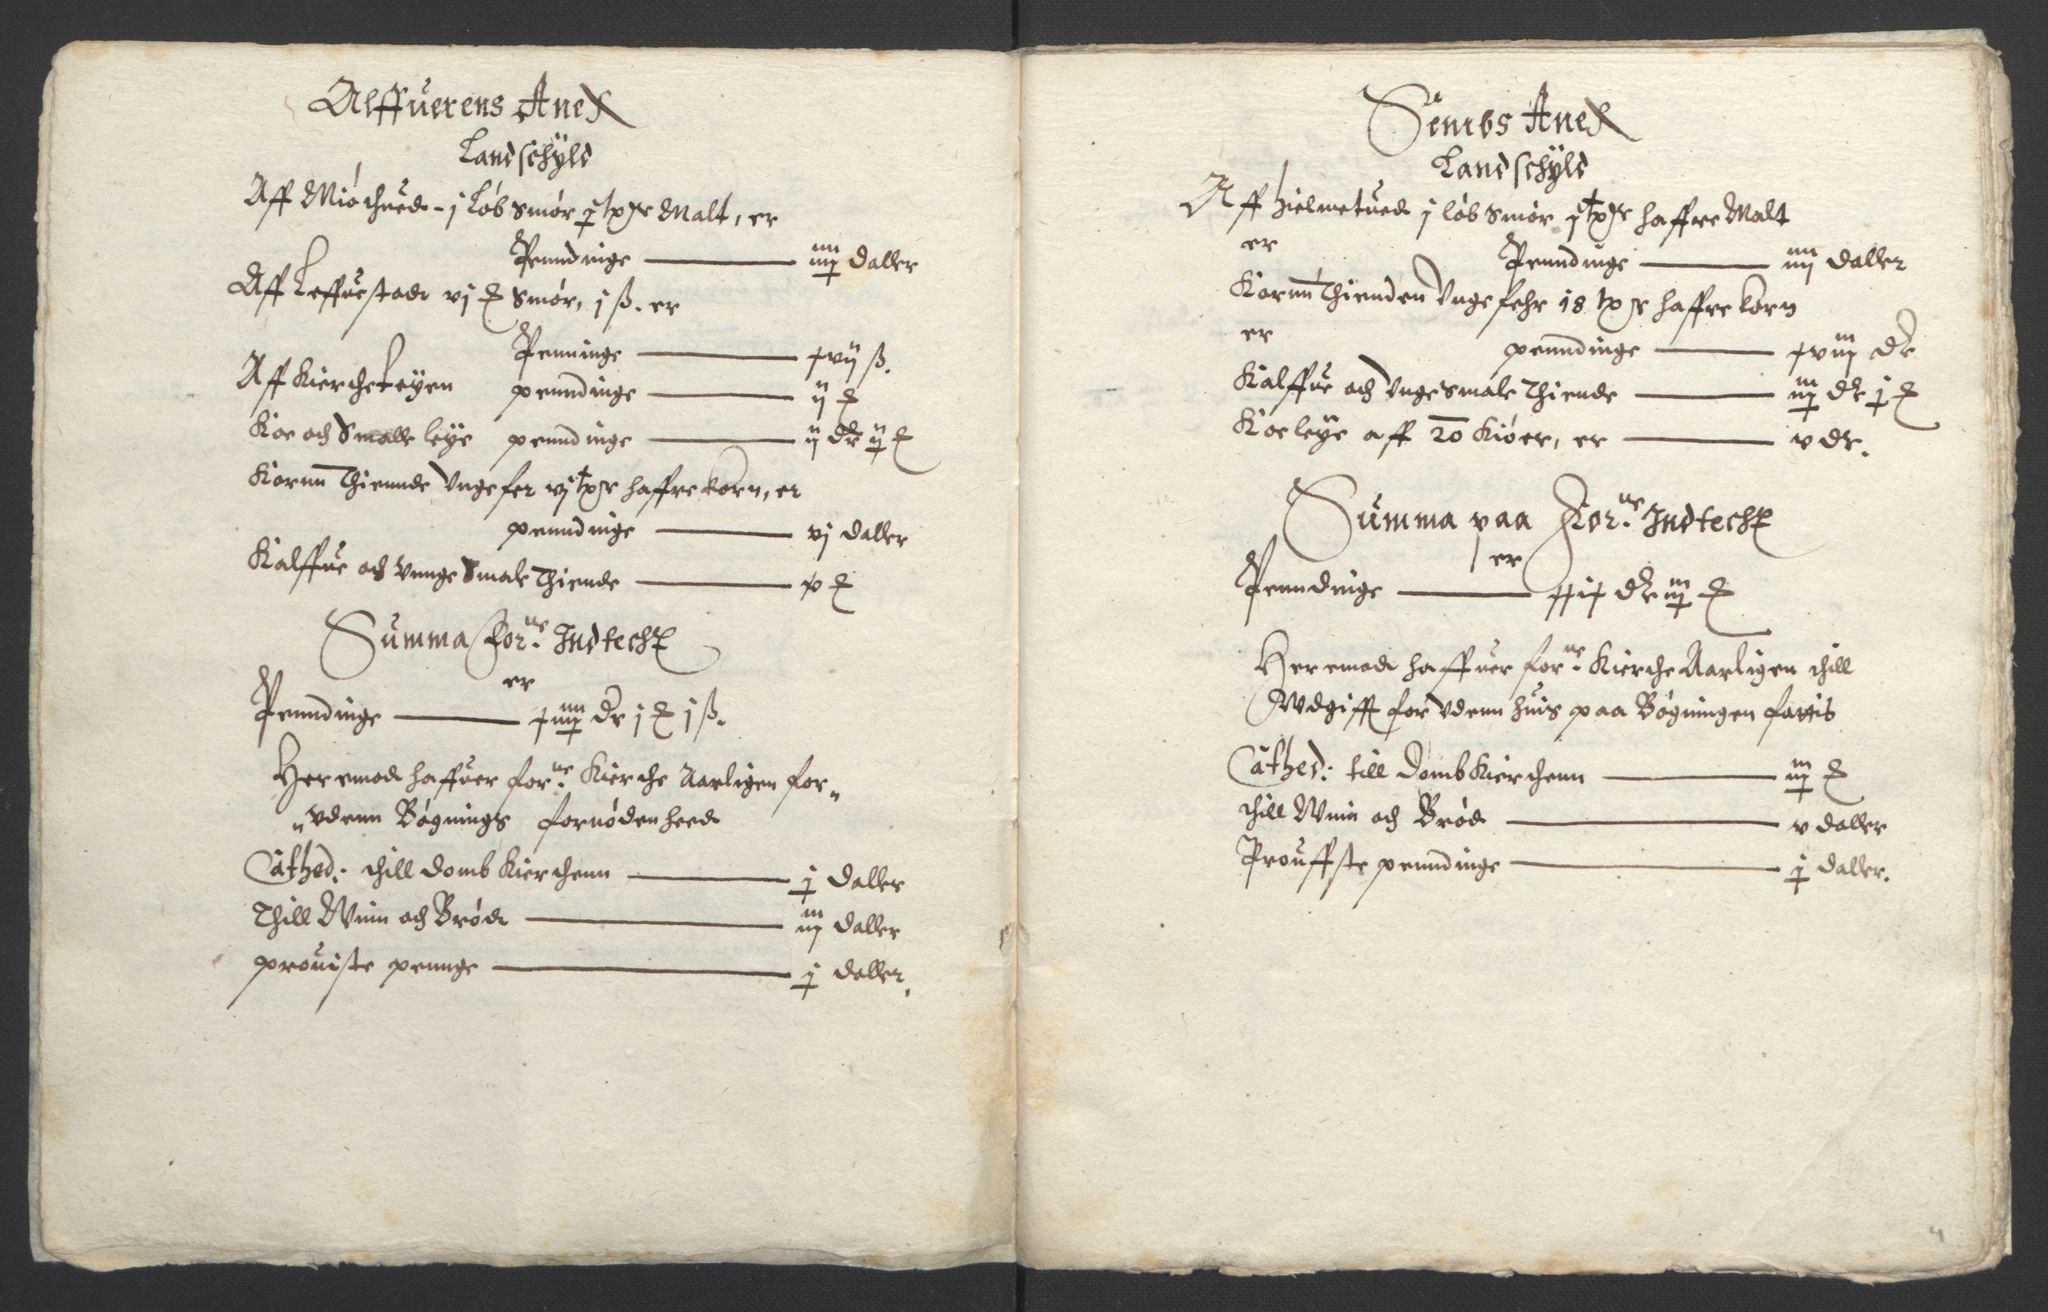 Alffuerens Anex
Landschyld
Aff Miöchued - j löb Smör j tndr Malt, er
Penndinge iiij daller
Aff Leffuestade vj Smör, j ß. er
Penninge xvij ß.
Aff Kiercheleyen penndinge ij
Koe och Smalle leye penndinge ij dr ij
Kornn Thiennde Ungefer vj tndr haffre korn, er
penndinge vj daller
Kalffue och Unnge Smale Thiende x
Summa For.ne Indtecht
er
Penndinge dr j j ß.
Heremod haffuer for.ne Kierche Aarligen for,,
,,vdenn Bögnings fornödenheed
Cathed: thill Domb Kierchenn j daller
Thill Wiin och Bröd iij daller
prouiste pennge j daller.
Sembs Anex
Landschyld
Aff Hielmetued j löb Smör j tndr haffre Malt
er Penndinge iiij daller
Kornn Thienden Ungefehr 18 tndr haffre korn
er penndinge xviij dr
Kalffue och Unge Smale Thiende iij dr j
Koe leye aff 20 Kiöer, er v dr.
Summa paa For.ne Indtecht
er
Penndinge dr iij
Heremod haffuer for.ne Kierche Aarligen thill
Wdgifft for vdenn huis paa Bögningen
Cathed: till Domb Kierchenn iij
thill Wiin och Bröd v daller
Prouffste penndinge j daller.
4